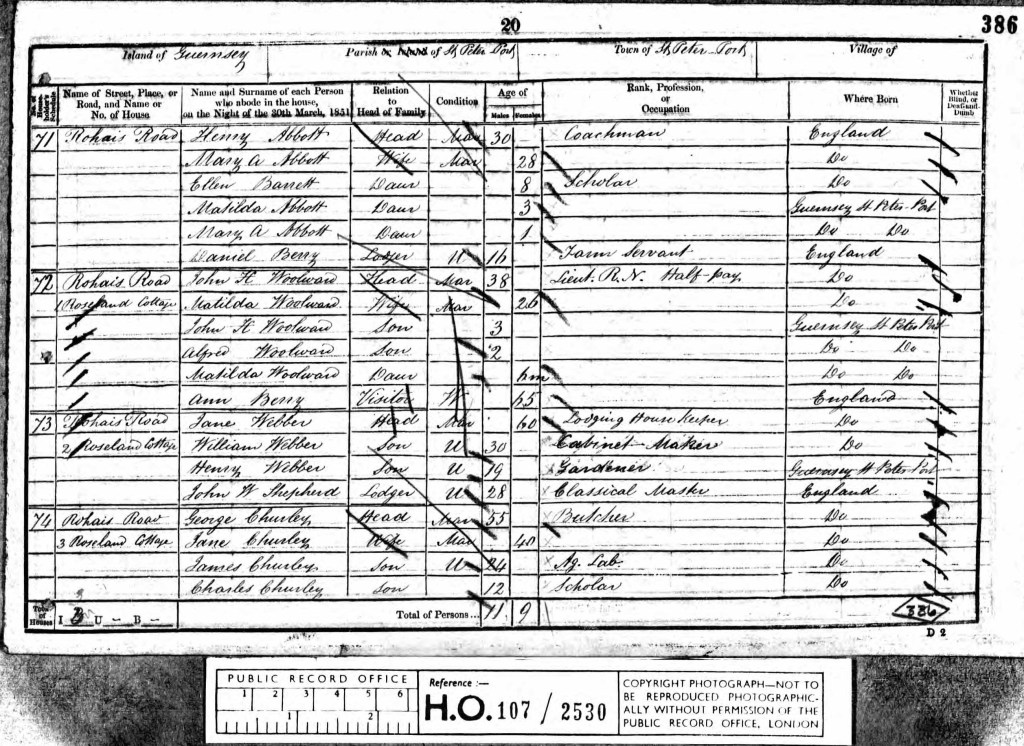 20
386
Island of Guernsey Parish or of St Peter Port Town of St Peter-Port Village of
No. of House-holder's Schedule Name of Street, Place, or Road, and Name or No. of House Name and Surname of each Person who abode in the house, on the Night of the 30th March, 1851 Relation to Head of Family Condition Age of Males Females Rank, Profession, or Occupation Where Born Whether Blind, or Deaf-and-Dumb
71 Rohais Road Henry Abbott Head Mar 30 Coachman England
Mary A Abbott Wife Mar 28 Do
Ellen Barrett Daur 8 Scholar Do
Matilda Abbott Daur 3 Guernsey St Peter-Port
Mary A Abbott Daur 1 Do Do
Daniel Berry Lodger U 16 Farm Servant England
72 Rohais Road John H Woolward Head Mar 38 Lieut. R.N. Half-pay Do
1 Roseland Cottage Matilda Woolward Wife Mar 26 Do
John H Woolward Son 3 Guernsey St Peter Port
Alfred Woolward Son 2 Do Do
Matilda Woolward Daur 6m Do Do
Ann Berry Visitor W 65 England
73 Rohais Road Jane Webber Head Mar 60 Lodging House Keeper Do
2 Roseland Cottage William Webber Son U 30 Cabinet-Maker Do
Henry Webber Son U 19 Gardener Guernsey St Peter-Port
John W Shepherd Lodger U 28 Classical Master England
74 Rohais Road George Churley Head Mar 55 Butcher Do
3 Roseland Cottage Jane Churley Wife Mar 40 Do
James Churley Son U 24 Ag. Lab. Do
Charles Churley Son 12 Scholar Do
Total of Houses I 3 U - B - Total of Persons... 11 9
386
D 2
PUBLIC RECORD OFFICE
1 2 3 4 5 6
1 2
Reference :—
H.O. 107 / 2530
COPYRIGHT PHOTOGRAPH—NOT TO
BE REPRODUCED PHOTOGRAPHIC-
ALLY WITHOUT PERMISSION OF THE
PUBLIC RECORD OFFICE, LONDON